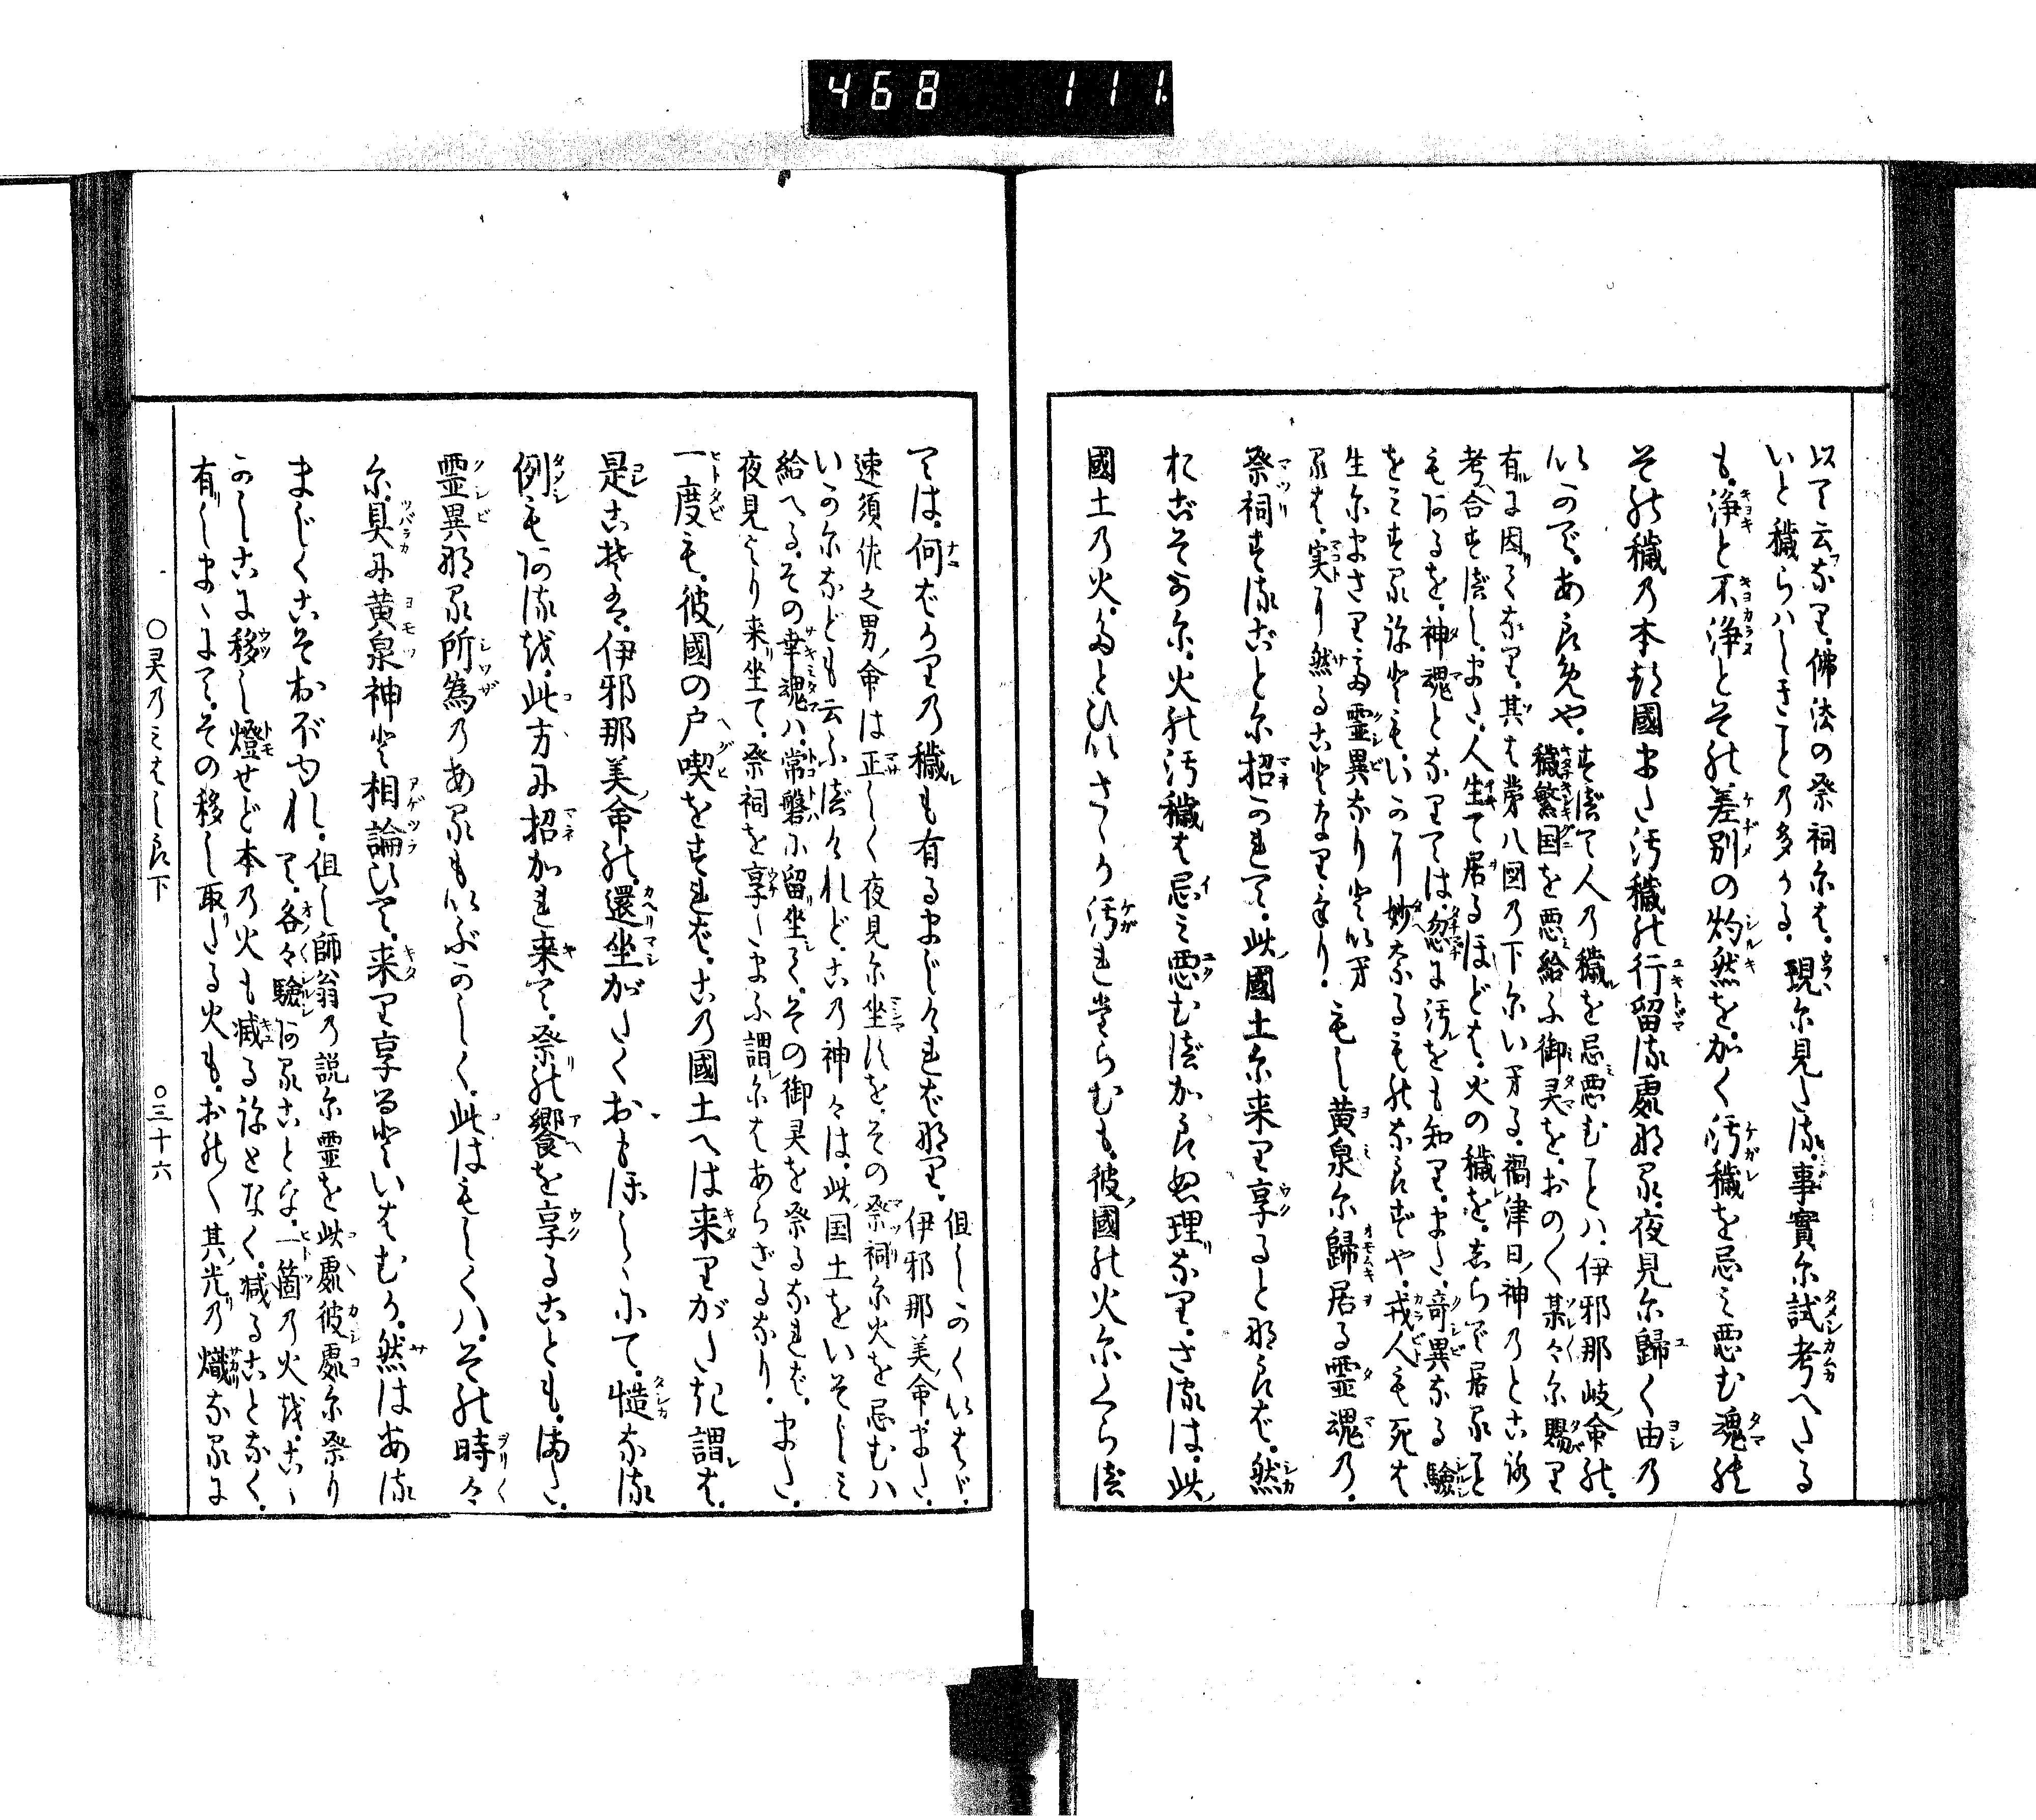 468 111.
以て云なり。佛法の祭祠には。現に見たる。事實に試考へたる
いと穢らハしきことの多かる。
も。浄と不浄とその差別の灼然を。かく汚穢を忌み悪む魂の
その穢の本つ國また汚穢の行留る處なる。夜見に歸く由の
いかで。あらめや。
すべて人の穢を忌悪むことハ。伊邪那岐命の。
穢繁国を悪給ふ御霊を。おの〱某々に賜り
有に因てなり。其は第八図の下にいへる。禍津日神のところ
考合すべし。また。人生て居るほどは。火の穢を。しらで居ること
もあるを。神魂となりては。忽に汚をも知り。また。奇異なる驗
をみするなども。いかに妙なるものならずや。戎人も死は
生にまさりて靈異なりといへ
るは。実に然ることなりけり。
もし黄泉に歸居る霊魂の。
祭祠するごとに招かれて。此國土に来り享ると為らば。然
ればその。火の汚穢は忌み悪むべからぬ理なり。さるは。此
國土の火。たとひいさゝか汚れたらむも。彼國の火にくらべ
ては。何ばかりの穢も有るまじければなり。
但しかくいはゞ。
伊邪那美命。また。
速須佐之男命は正しく夜見に坐すを。その祭祠に火を忌むハ
いかになども云ふべけれど。この神々は。此国土をいそしみ
給へる。その幸魂ハ。常磐に留坐て。その御霊を祭るなれば。
夜見より来坐て。祭祠を享たまふ謂にはあらざるなり。また。
一度も。彼國の戸喫をすれば。この國土へは来りがたき謂は。
是こそは。伊邪那美命の。還坐がたくおもほしゝにて。慥なる
例もあるを。此方に招かれ来て。祭の饗を享ることも。はた。
霊異なる所為のあるもいぶかしく。此はもしくハ。その時々
に。具に黄泉神と相論ひて。来り享るといはむか。然はある
まじくこそおぼゆれ。
但し師翁の説に霊を此處彼處に祭り
て。各々驗あることは。一箇の火を。こゝ
かしこに移し燈せど本の火も滅るなどなく。減ることなく。
有しまゝにて。その移し取たる火も。おの〱其光の熾なるに
○霊のみはしら下 ○三十六